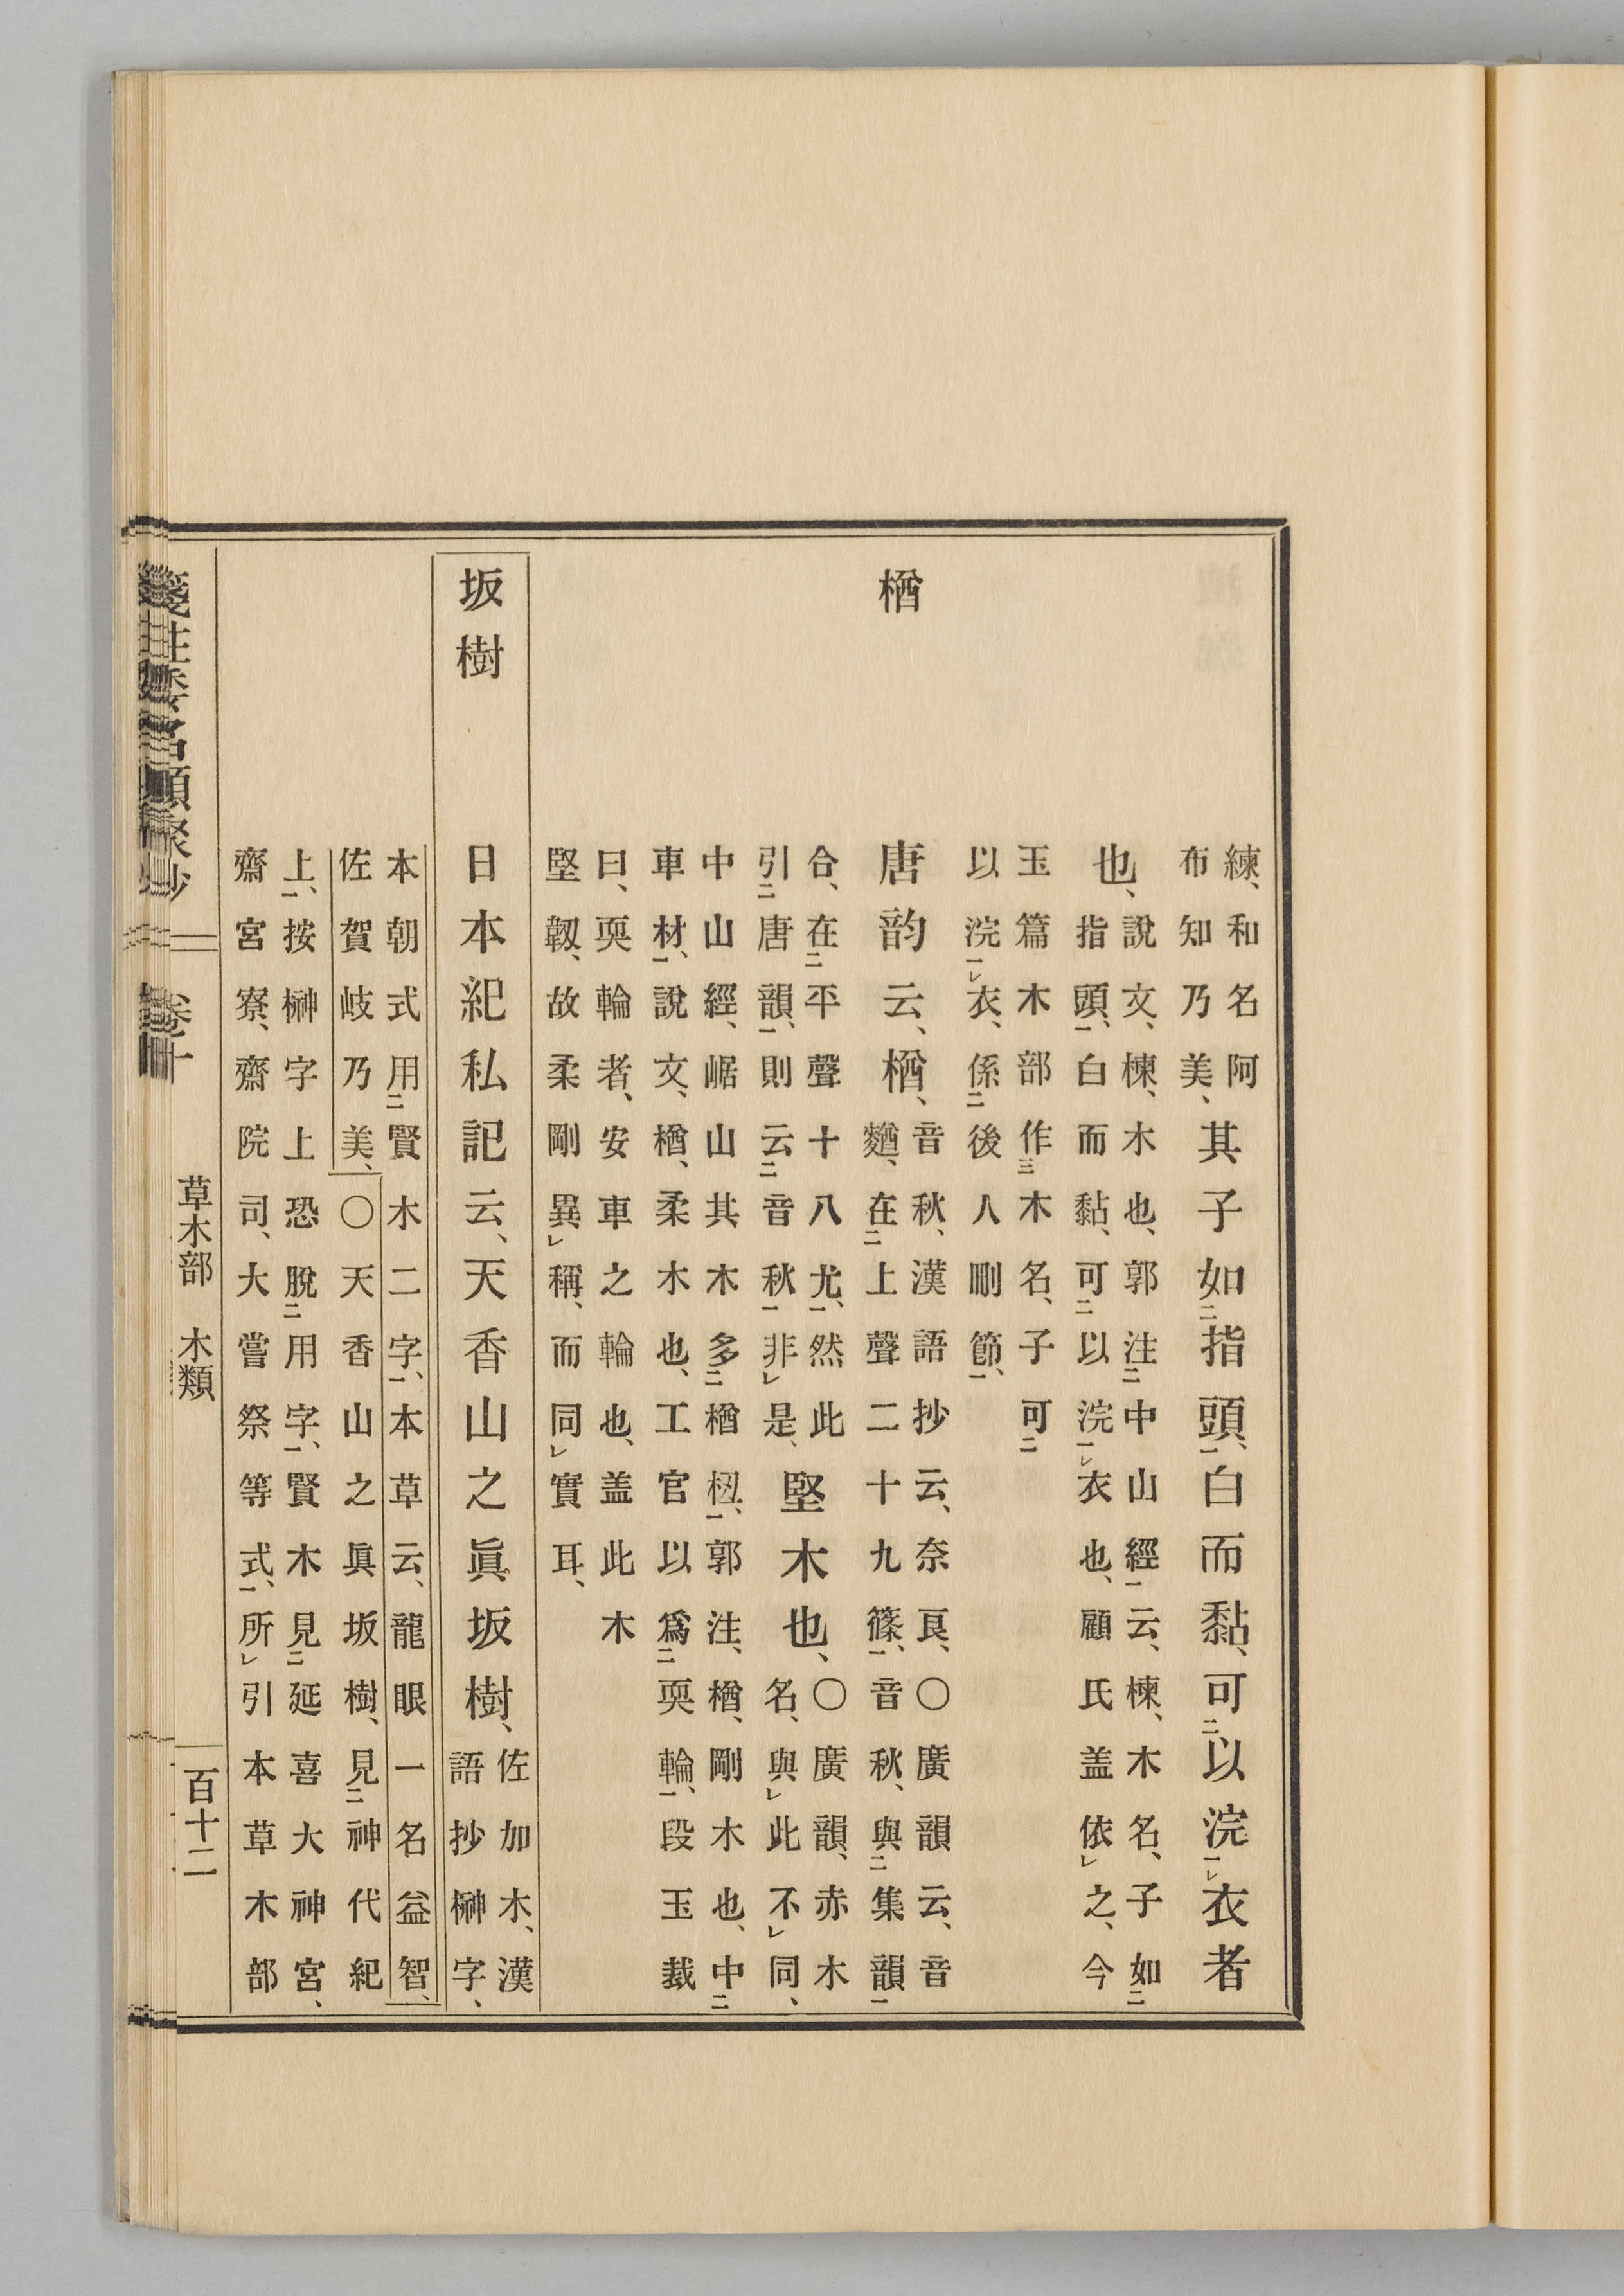 練、和名阿
布知乃美、
其子如指頭、白而黏、可以浣衣者
也、
說文、楝、木也、郭注中山經云、楝、木名、子如
指頭、白而黏、可以浣衣也、顧氏盖依之、今
玉篇木部作木名、子可
以浣衣、係後人刪節、
楢
唐韵云、楢、
音秋、漢語抄云、奈良、〇廣韻云、音
在上聲二十九篠、音秋、與集韻
合、在平聲十八尤、然此
引唐韻、則云音秋非是、
堅木也、
〇廣韻、赤木
名、與此不同、
中山經、崌山其木多楢杻、郭注、楢、剛木也、中
車材、說文、楢、柔木也、工官以爲耎輪、段玉裁
曰、耎輪者、安車之輪也、盖此木
堅韌、故柔剛異稱、而同實耳、
坂樹
日本紀私記云、天香山之眞坂樹、
佐加木、漢
語抄榊字、
本朝式用賢木二字、本草云、龍眼一名益智、
佐賀岐乃美、〇天香山之眞坂樹、見神代紀
上、按榊字上恐脫用字、賢木見延喜大神宮、
齋宮寮、齋院司、大嘗祭等式、所引本草木部
箋註倭名類聚抄 卷十 草木部 木類 百十二